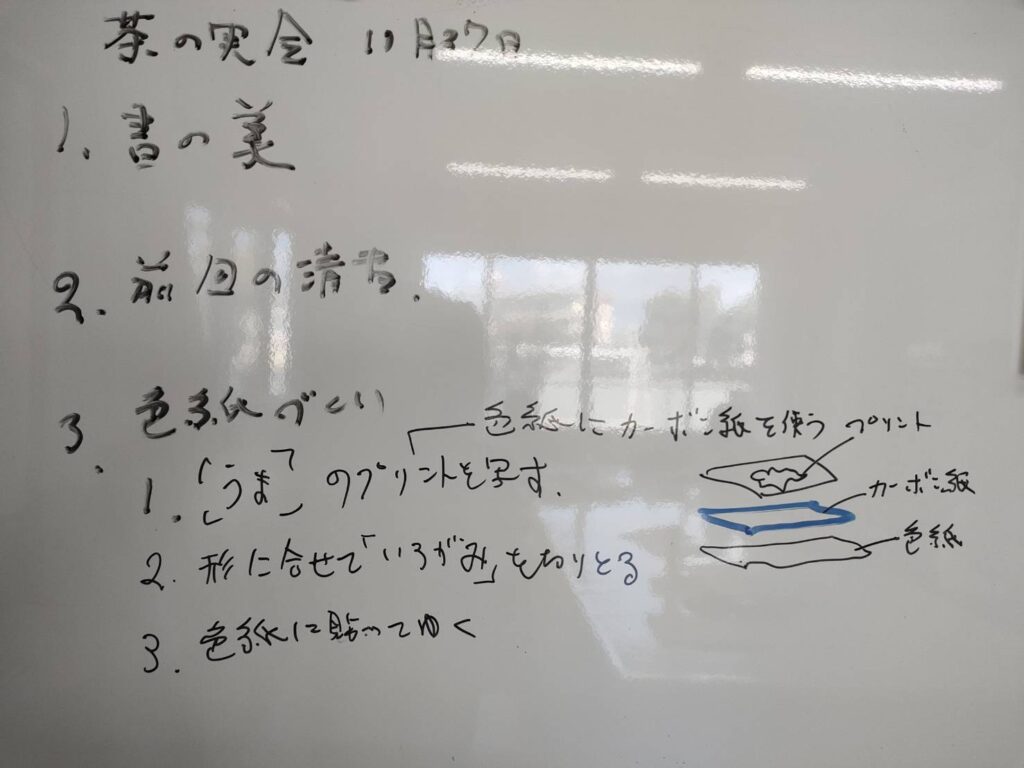 茶の実会 11月27日
1. 書の美
2. 前回の清書.
3. 色紙づくり
色紙にカーボン紙を使う
1.「うま」のプリントを写す.
2. 形に合せて「いろがみ」を切りとる
3. 色紙に貼ってゆく
プリント
カーボン紙
色紙